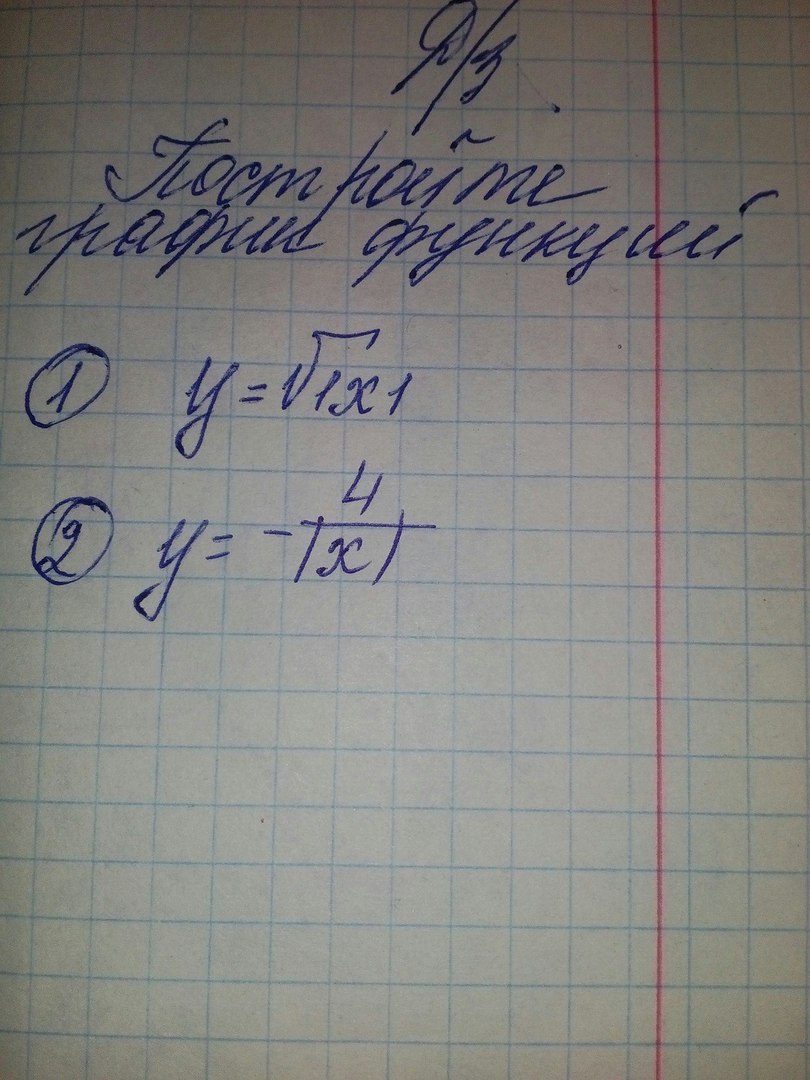 Д/з.
Постройте
график функций
① y = √|x|
② y = -4/|x|